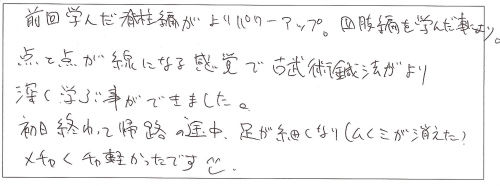 前回学んだ脊柱編がよりパワーアップ。四肢編を学んだ事により。
点と点が線になる感覚で古武術鍼法がより
深く学ぶ事ができました。
初日終わって帰路の途中、足が細くなり(ムクミが消えた?)
メチャくちゃ軽かったです